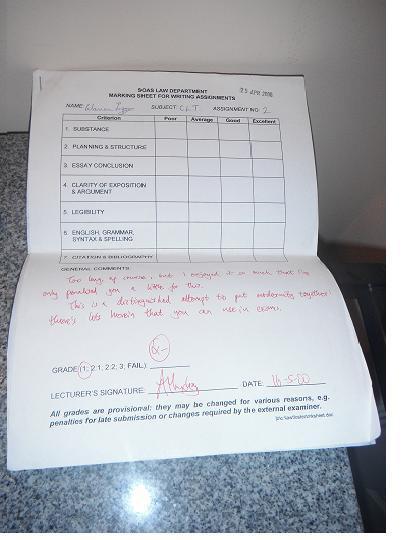 25 APR 2000
SOAS LAW DEPARTMENT
MARKING SHEET FOR WRITING ASSIGNMENTS
NAME: SUBJECT: ASSIGNMENT NO: 2
Criterion Poor Average Good Excellent
1. SUBSTANCE
2. PLANNING & STRUCTURE
3. ESSAY CONCLUSION
4. CLARITY OF EXPOSITION
& ARGUMENT
5. LEGIBILITY
6. ENGLISH, GRAMMAR,
SYNTAX & SPELLING
7. CITATION & BIBLIOGRAPHY
GENERAL COMMENTS:
Too long, of course, but I enjoyed it so much that I've
only penalised you a little for this.
This is a distinguished attempt to put modernity together:
there's lots herein that you can use in exams.
GRADE (1; 2.1; 2.2; 3; FAIL):
LECTURER'S SIGNATURE: DATE: 16-5-00
All grades are provisional: they may be changed for various reasons, e.g.
penalties for late submission or changes required by the external examiner.